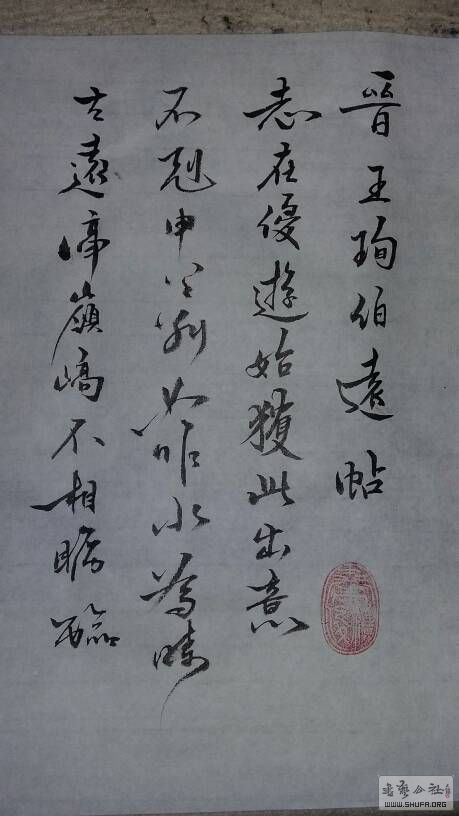 晉王珣伯遠帖
志在優遊始獲此出意
不剋申分別如昨永為疇
古遠隔嶺嶠不相瞻臨
书艺公社
WWW.SHUFA.ORG